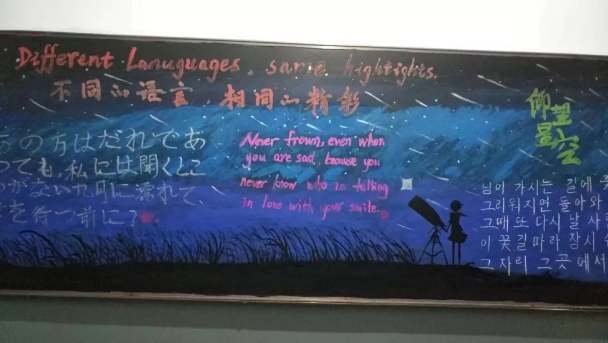 Different Lanuguages, same hightights.
不同的语言 相同的精彩
仰望
星空
の方はだれであ
っても,私には開くこ
を行く前に?
Never frown, even when
you are sad, because you
never know who is falling
in love with your smile.
님이 가시는 길에
그리워지면 돌아와
그때 또 다시 날 사
이 꽃길 따라 잠시
그 자리 그곳에서